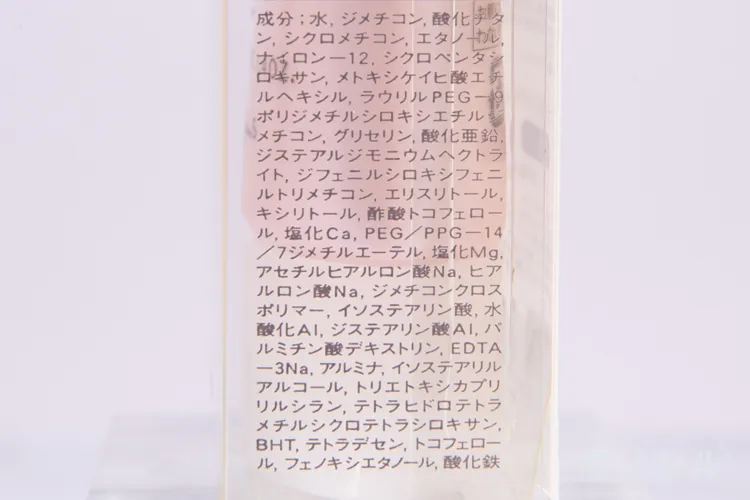 成分；水, ジメチコン, 酸化チタ
ン, シクロメチコン, エタノール,
ナイロン－12, シクロペンタシ
ロキサン, メトキシケイヒ酸エチ
ルヘキシル, ラウリルPEG－9
ポリジメチルシロキシエチルジ
メチコン, グリセリン, 酸化亜鉛,
ジステアルジモニウムヘクトラ
イト, ジフェニルシロキシフェニ
ルトリメチコン, エリスリトール,
キシリトール, 酢酸トコフェロー
ル, 塩化Ca, PEG／PPG－14
／7ジメチルエーテル, 塩化Mg,
アセチルヒアルロン酸Na, ヒア
ルロン酸Na, ジメチコンクロス
ポリマー, イソステアリン酸, 水
酸化Al, ジステアリン酸Al, パ
ルミチン酸デキストリン, EDTA
－3Na, アルミナ, イソステアリル
アルコール, トリエトキシカプリ
リルシラン, テトラヒドロテトラ
メチルシクロテトラシロキサン,
BHT, テトラデセン, トコフェロー
ル, フェノキシエタノール, 酸化鉄